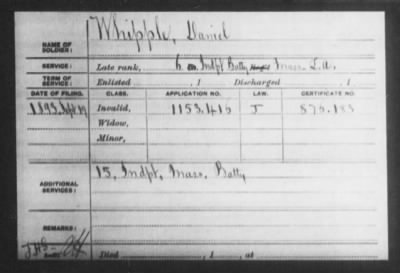 Whipple, Daniel
NAME OF SOLDIER:
SERVICE: Late rank, 6 Indpt Batty Mass. L.A.
TERM OF SERVICE: Enlisted , 1 Discharged , 1 .
DATE OF FILING. CLASS. APPLICATION NO. LAW. CERTIFICATE NO.
1893, Sept 19 Invalid, 1153.416 J 876.183
Widow,
Minor,
ADDITIONAL SERVICES: 15, Indpt, Mass, Batty
REMARKS:
Died , 1 , at